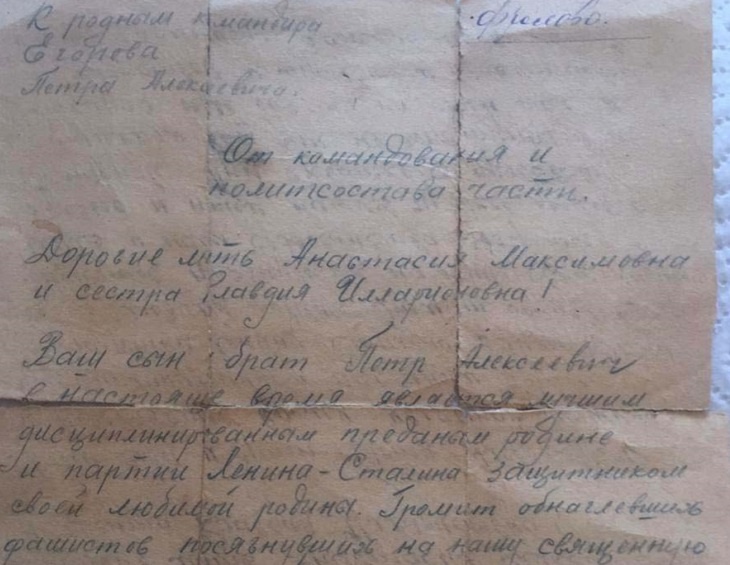 К родным командира
Фролова.
Егорова
Петра Алекаевича.
От командования и
политсостава части.
Дорогие мать Анастасия Максимовна
и сестра Клавдия Илларионовна!
Ваш сын брат Петр Алексеевич
в настояще время является лучшим
дисциплинированным преданым родине
и партии Ленина-Сталина защитником
своей любимой родина. Громит обнаглевших
фашистов посягнувших на нашу священную